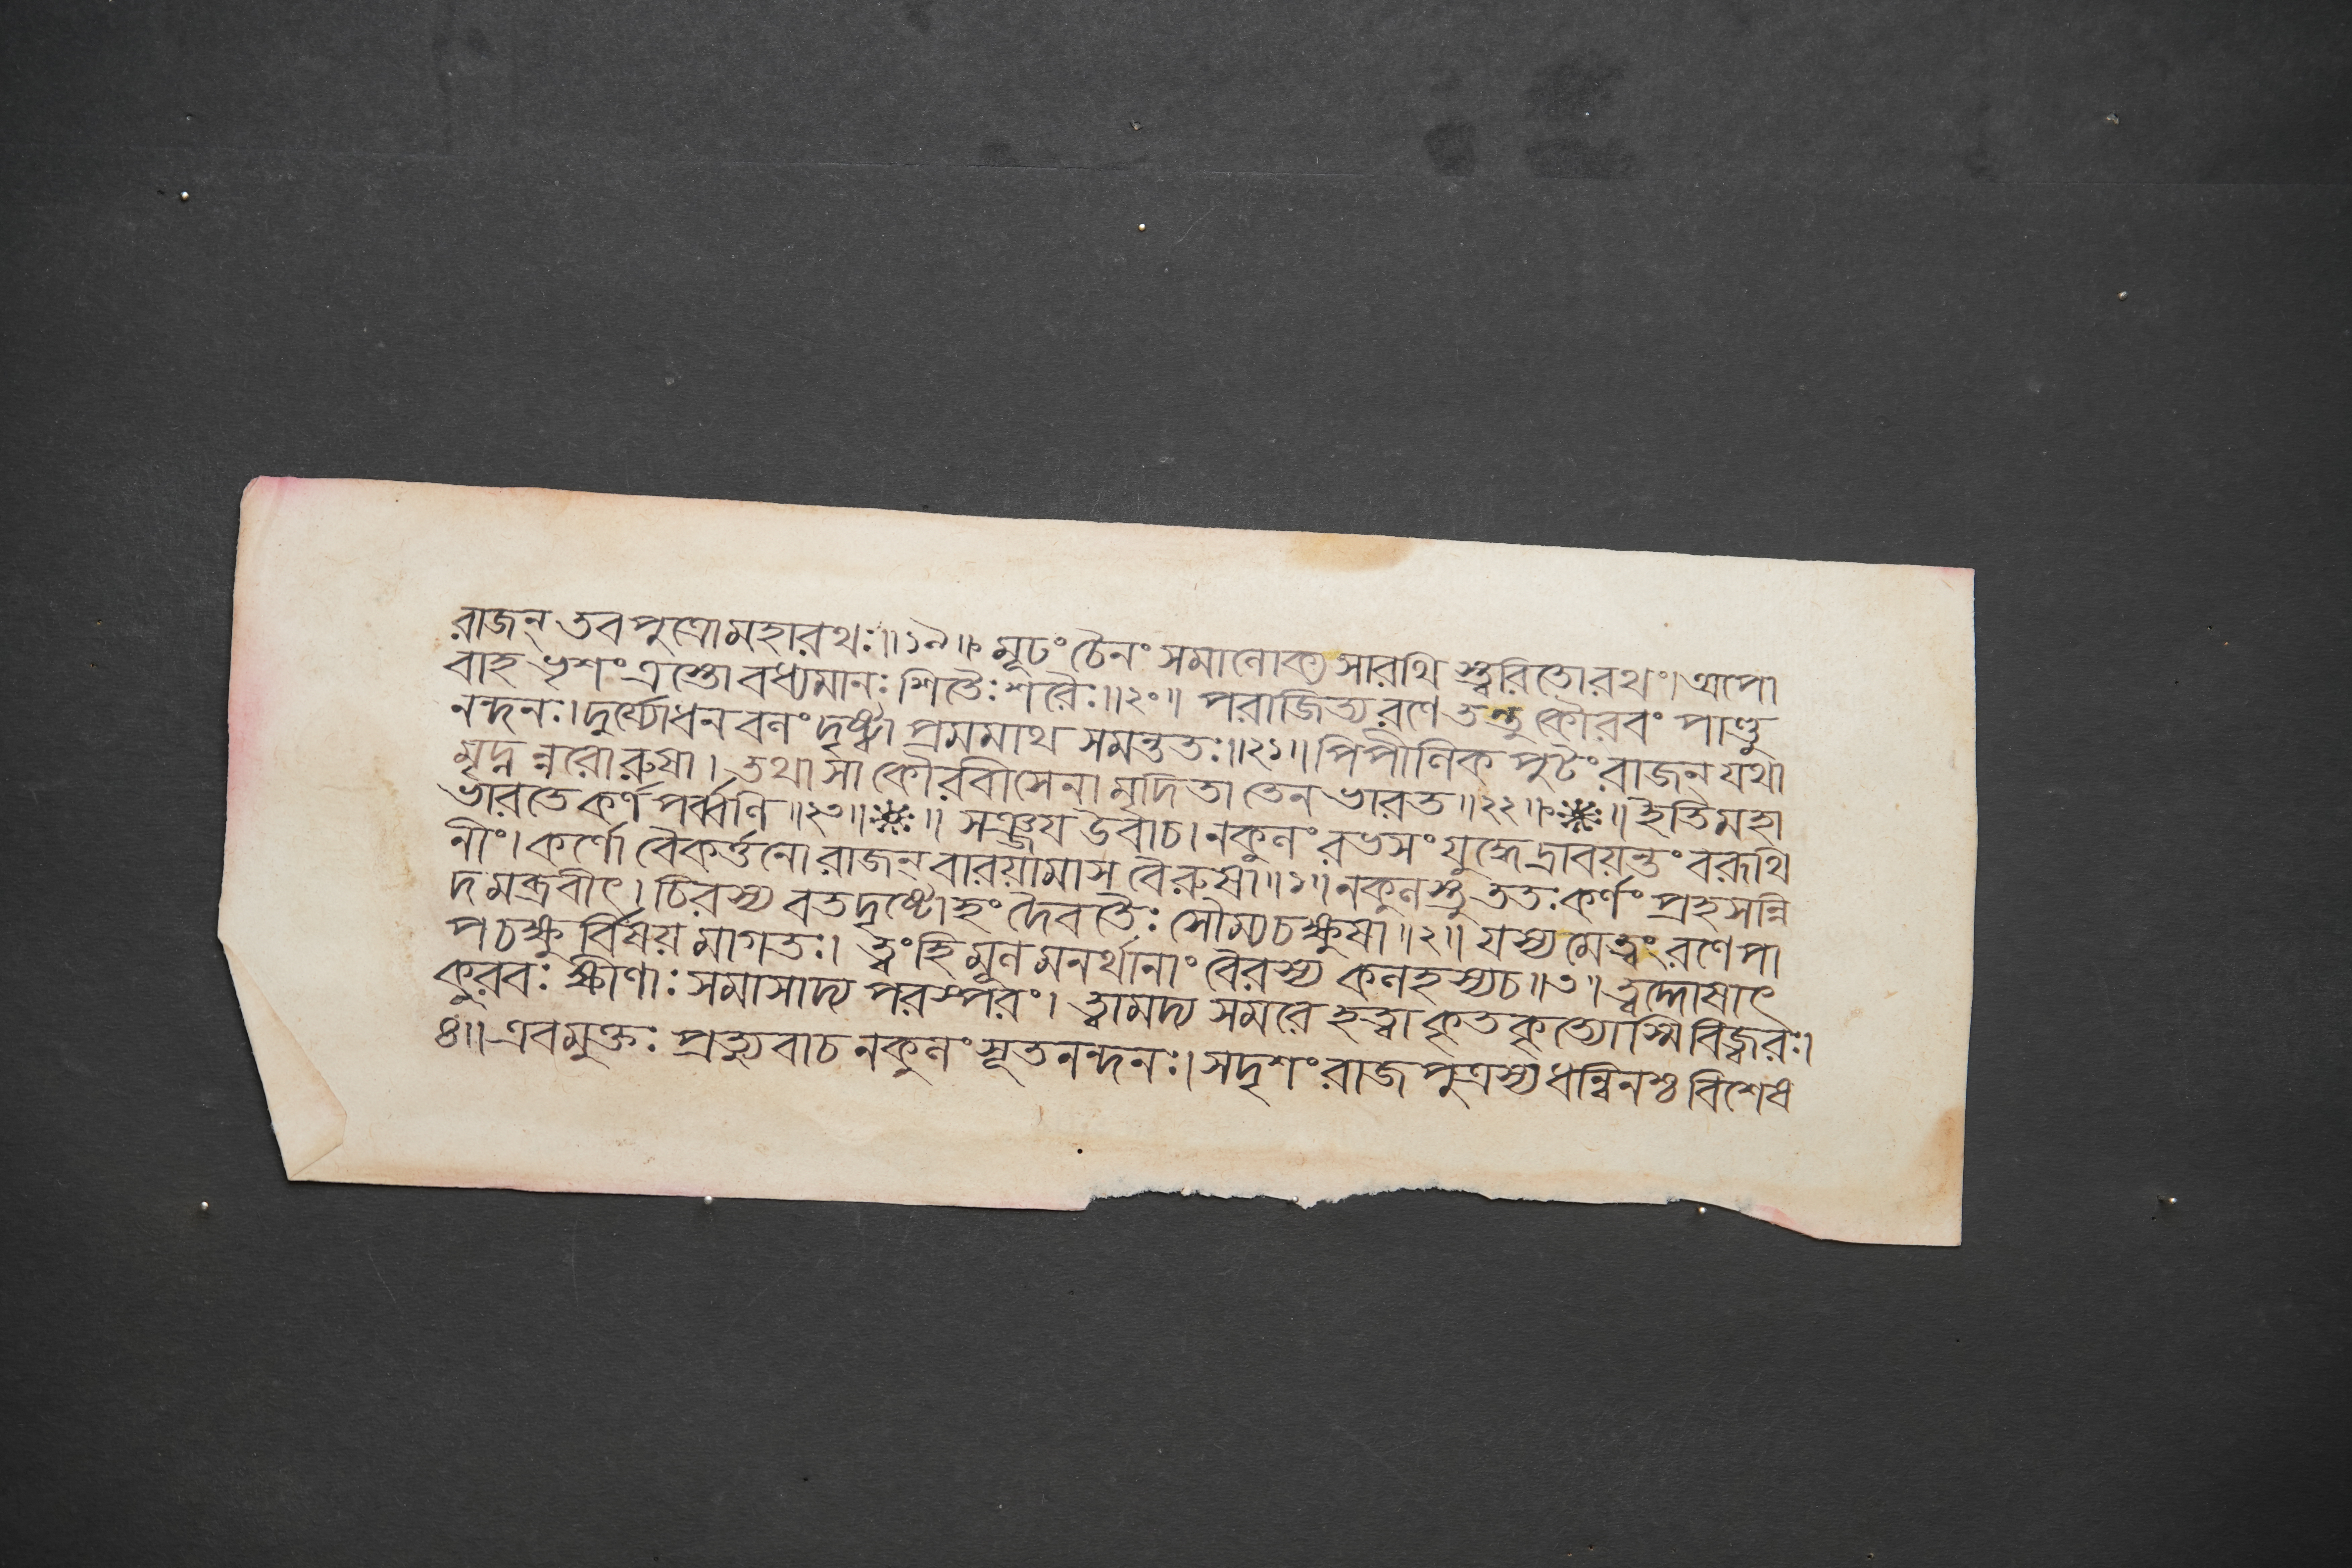 রাজন্ তব পুত্রো মহারথঃ॥১৯॥ মূঢং চৈনং সমালোক্য সারথি স্ত্বরিতোরথং।অপো
বাহ ভৃশং ত্রস্তো বধ্যমানঃ শিতৈঃ শরৈঃ॥২০॥ পরাজিত্য রণে তন্তু কৌরবং পাণ্ডু
নন্দনঃ।দুর্য্যোধন বলং দৃষ্ট্বা প্রমমাথ সমন্ততঃ॥২১॥ পিপীলিক পুটং রাজন্ যথা
মৃদ্ন ন্নরোরুষা। তথা সা কৌরবীসেনা মৃদিতা তেন ভারত॥২২॥❈॥ ইতিমহা
ভারতে কর্ণ পর্ব্বণি॥২৩॥❈॥ সঞ্জয উবাচ।নকুলং রভসং যুদ্ধে দ্রাবয়ন্তং বরূথি
নীং। কর্ণো বৈকর্ত্তনো রাজন্ বারয়ামাস বৈরুষা॥১॥নকুলস্তু ততঃ কর্ণং প্রহসন্নি
দমব্রবীৎ। চিরস্য বতদৃষ্টোহং দৈবতৈঃ সৌম্যচক্ষুষা॥২॥ যস্য মেত্বং রণে পা
পচক্ষু র্বিষয় মাগতঃ। ত্বংহি মূল মনর্থানাং বৈরস্য কলহস্যচ॥৩॥ ত্বদ্দোষাৎ
কুরবঃ ক্ষীণাঃ সমাসাদ্য পরস্পরং। ত্বামদ্য সমরে হত্বা কৃতকৃত্যোস্মি বিজ্বরঃ।
৪॥ এবমুক্তঃ প্রত্যুবাচ নকুলং সূতনন্দনঃ।সদৃশং রাজ পুত্রস্য ধন্বিনশ্চ বিশেষ